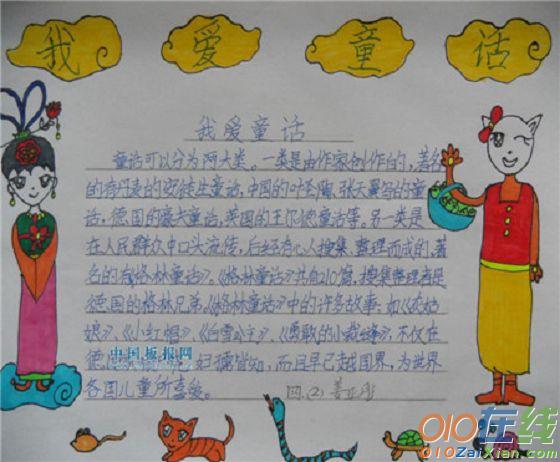 我 爱 童 话
我爱童话
童话可以分为两大类。一类是由作家创作的,著名
的有丹麦的安徒生童话,中国的叶圣陶、张天翼写的童
话,德国的豪夫童话,英国的王尔德童话等。另一类是
在人民群众中口头流传,后经有心人搜集整理而成的,著
名的有《格林童话》。《格林童话》共有210篇,搜集整理者是
德国的格林兄弟。《格林童话》中的许多故事,如《灰姑
娘》、《小红帽》、《白雪公主》、《勇敢的小裁缝》,不仅在
德国 妇孺皆知,而且早已越国界,为世界
各国儿童所喜爱。 四.(2)
中国板报网
010在线
010ZaiXian.com